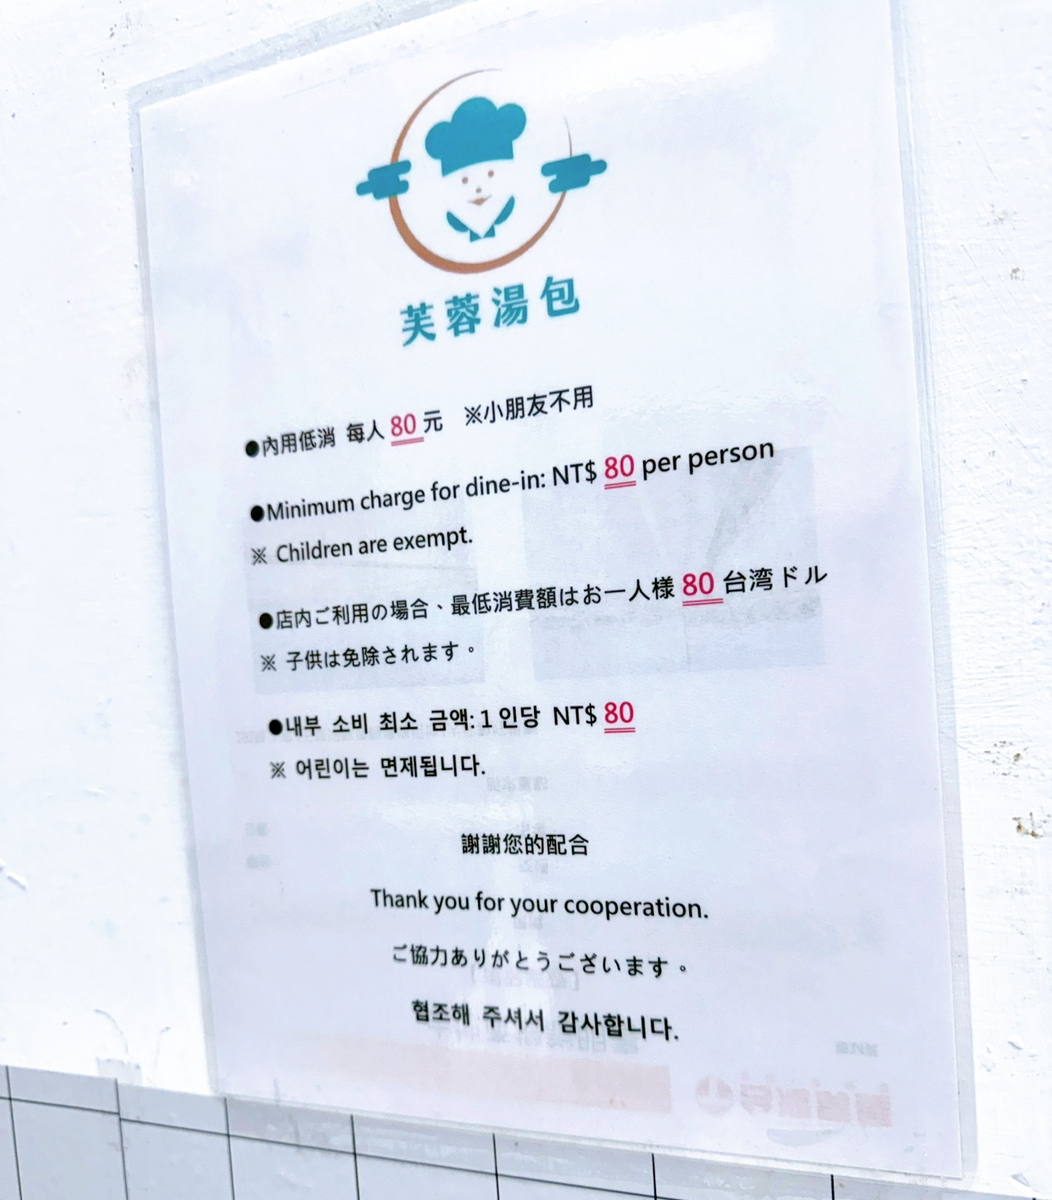 芙蓉湯包
●內用低消 每人 80 元 ※小朋友不用
●Minimum charge for dine-in: NT$ 80 per person
※ Children are exempt.
●店内ご利用の場合、最低消費額はお一人様 80 台湾ドル
※ 子供は免除されます。
●내부 소비 최소 금액: 1 인당 NT$ 80
※ 어린이는 면제됩니다.
謝謝您的配合
Thank you for your cooperation.
ご協力ありがとうございます。
협조해 주셔서 감사합니다.